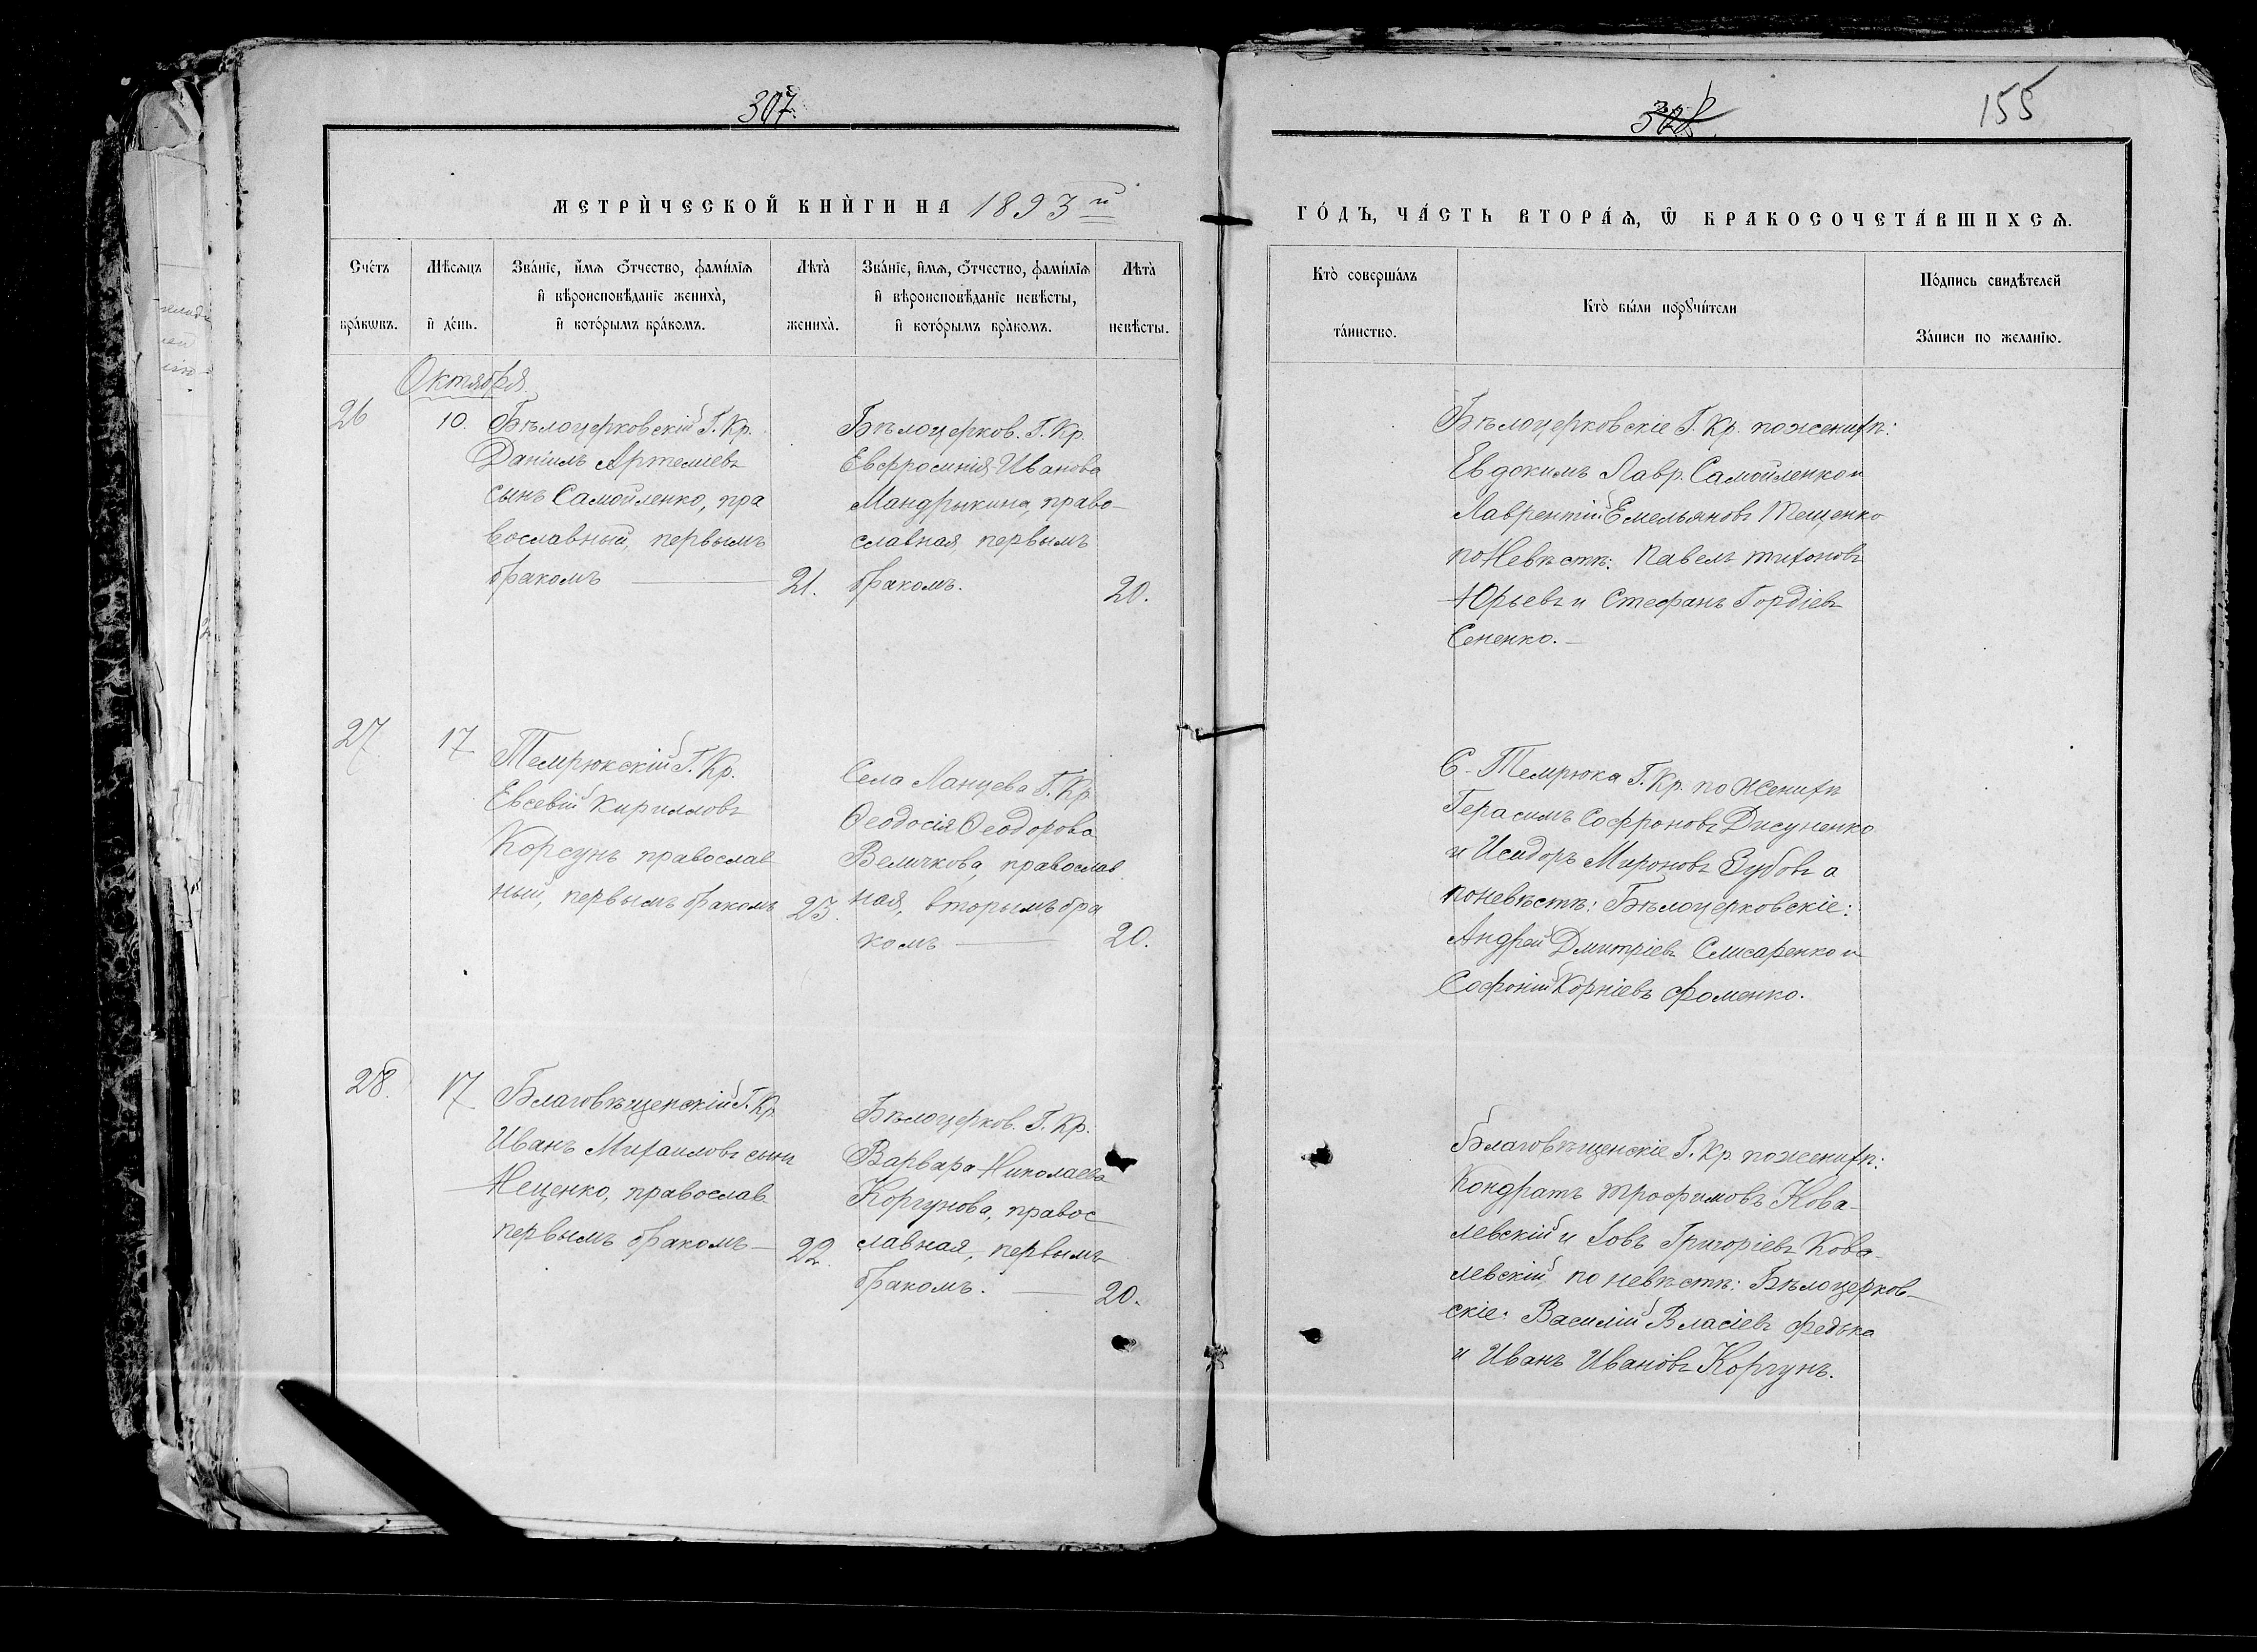 307
МЕТРИ́ЧЕСКОЙ КНИ́ГИ НА 1893й
Сче́тъ
бра́кѡвъ.
Мѣ́сѧцъ
и҆ де́нь.
Зва́нїе, и҆́мѧ ѻ҆́тчество, фами́лїѧ
и҆ вѣроисповѣ́данїе жениха̀,
и҆ кото́рымъ бра́комъ.
Лѣта̀
жениха̀.
Зва́нїе, и҆́мѧ, ѻ҆́тчество, фами́лїѧ
и҆ вѣроисповѣ́данїе невѣ́сты,
и҆ кото́рымъ бра́комъ.
Лѣта̀
невѣ́сты.
Октября
26
10.
Бѣлоцерковскій Г. Кр.
Даніилъ Артеміевъ
сынъ Самойленко, пра
вославный, первымъ
бракомъ —
21.
Бѣлоцерков. Г. Кр.
Евфросинія Иванова
Мандрыкина, право-
славная, первымъ
бракомъ.
20.
27
17
Темрюкскій Г. Кр.
Евсевій Кирилловъ
Корсунъ православ
ный, первымъ бракомъ
23.
Села Ланцева Г. Кр
Ѳеодосія Ѳеодорова
Величкова, православ
ная, вторымъ бра
комъ —
20.
28.
17
Благовѣщенскій Г. Кр
Иванъ Михаиловъ сынъ
Нещенко, православ.
первымъ бракомъ —
22.
Бѣлоцерков. Г. Кр.
Варвара Николаева
Коргунова, правос
лавная, первымъ
бракомъ. —
20.
308
155
ГО́ДЪ, ЧА́СТЬ ВТОРА́Ѧ, Ѡ҆ БРАКОСОЧЕТА́ВШИХСѦ.
Кто̀ соверша́лъ
та́инство.
Кто̀ бы́ли порꙋчи́тели
По́дпись свидѣ́телей
За́писи по жела́нїю.
Бѣлоцерковскіе Г. Кр. по женихѣ:
Евдокимъ Лавр. Самойленко и
Лаврентій Емельяновъ Тещенко
по Невѣстѣ: Павелъ Тихоновъ
Юрьевъ и Стефанъ Гордіевъ
Сененко. —
С. Темрюка Г. Кр. по Женихѣ
Герасимъ Софроновъ Дисуненко
и Исидоръ Мироновъ Зубовъ а
по невѣстѣ: Бѣлоцерковскіе:
Андрей Дмитріевъ Слисаренко и
Софоній Корніевъ Фоменко.
Благовѣщенскіе Г. Кр. по женихѣ:
Кондратъ Трофимовъ Кова-
левскій и Іовъ Григоріевъ Кова-
левскій, по невѣстѣ: Бѣлоцерков-
скіе: Василій Власіевъ Федька
и Иванъ Ивановъ Коргунъ.